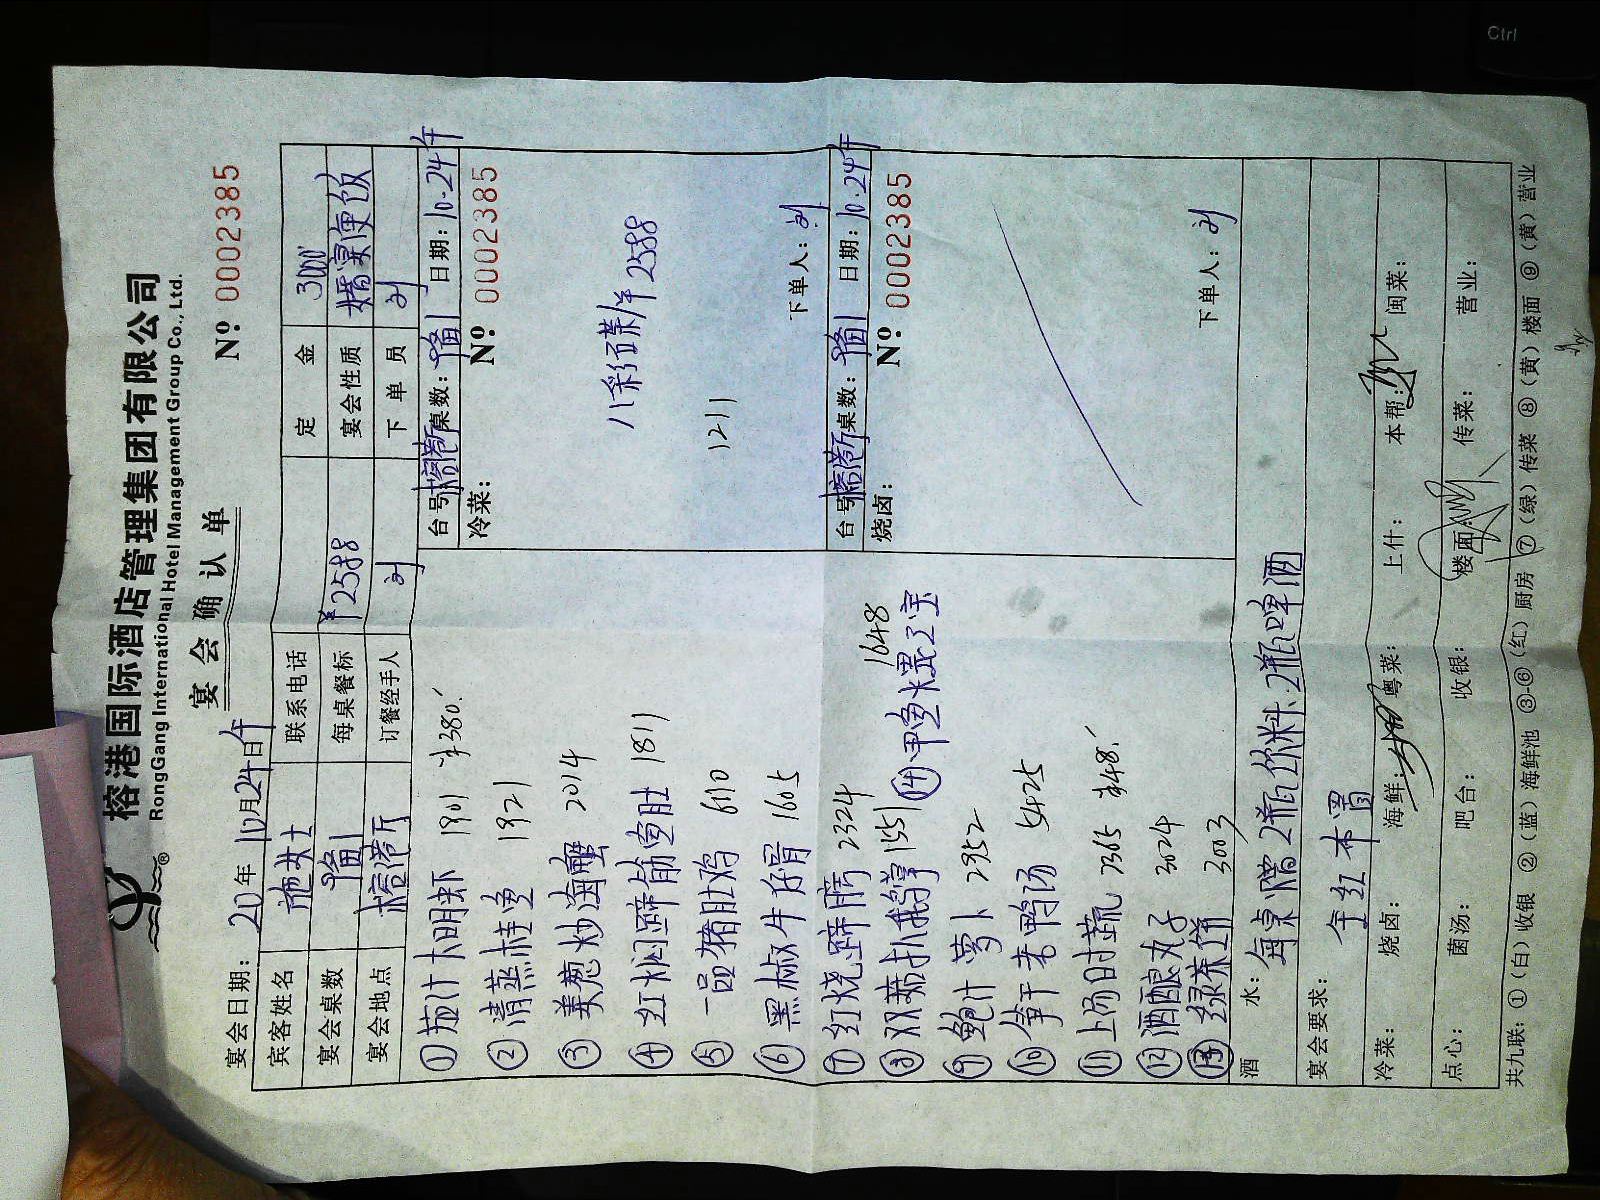 榕港国际酒店管理集团有限公司
RongGang International Hotel Management Group Co., Ltd.
宴会确认单
宴会日期：20 年 10月24日午
Nº 0002385
宾客姓名 施女士 联系电话 定金 3000
宴会桌数 每桌餐标 ¥2588 宴会性质 婚宴便饭
宴会地点 榕港厅 订餐经手人 刘 下单员 刘
① 茄汁大明虾 1901 ¥380.
② 清蒸桂鱼 1921
③ 姜葱炒海蟹 2014
④ 红焖蹄筋鱼肚 1811
⑤ 一品猪肚鸡 6110
⑥ 黑椒牛仔骨 1605
⑦ 红烧蹄膀 2324
⑧ 双菇扒鹅掌 1551
⑭ 甲鱼煨三宝 1648
⑨ 鲍汁萝卜 2952
⑩ 笋干老鸭汤 5425
⑪ 上汤时蔬 2365 ¥48.
⑫ 酒酿丸子 3024
⑬ 绿茶饼 3003
台号 榕港厅 桌数： 日期：10.24午
冷菜：
Nº 0002385
八彩碟 2588
1211
下单人：刘
台号 榕港厅 桌数： 日期：10.24午
烧卤：
Nº 0002385
下单人：刘
酒水： 每桌赠2瓶饮料.2瓶啤酒
宴会要求： 全红布置
冷菜： 烧卤： 海鲜： 粤菜： 上什： 本帮： 闽菜：
点心： 菌汤： 吧台： 收银： 楼面： 传菜： 营业：
共九联：①（白）收银 ②（蓝）海鲜池 ③-⑥（红）厨房 ⑦（绿）传菜 ⑧（黄）楼面 ⑨（黄）营业
Ctrl